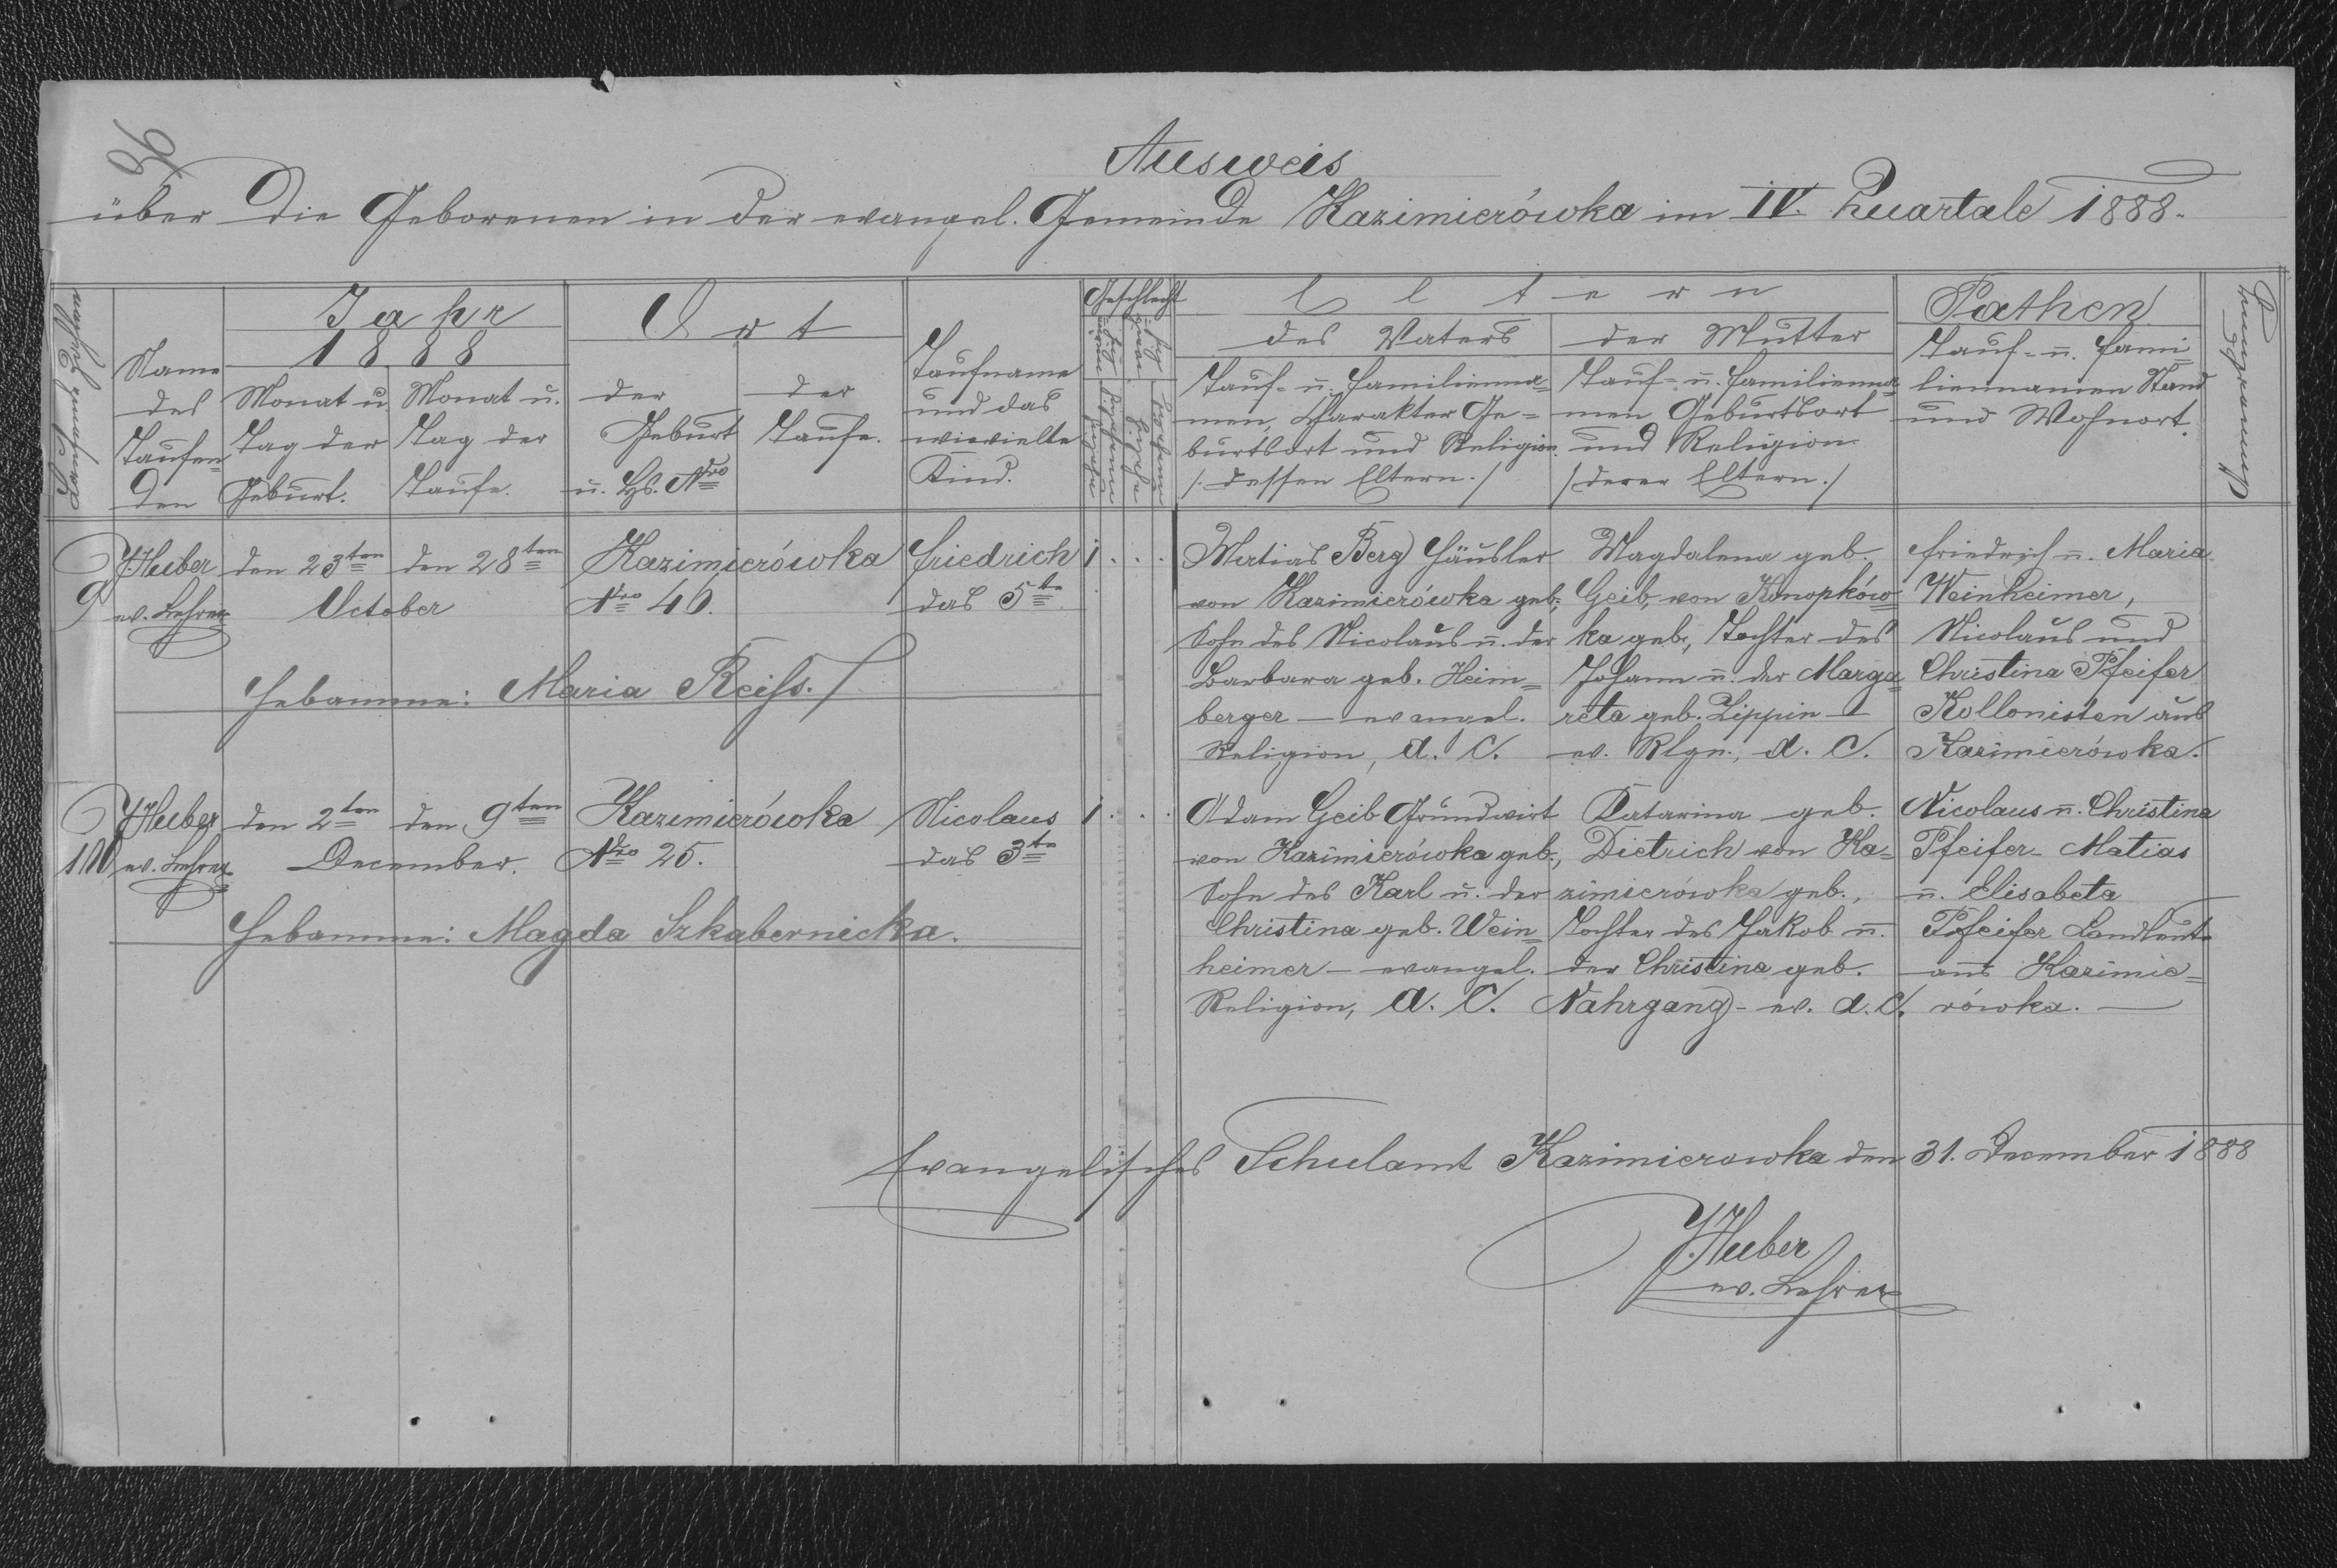 96
Ausweis
über die Geborenen in der evangel. Gemeinde Kazimierówka im IV. Quartale 1888.
Jahr
1888
Ort
Geschlecht
Eltern
Pathen
Anmerkung
Name
des
Taufen=
den
Monat u.
Tag der
Geburt.
Monat u.
Tag der
Taufe.
der
Geburt
u. Hs. Nro
der
Taufe.
Taufname
und das
wievielte
Kind.
des Vaters
Tauf- u. Familienna=
men, Charakter Ge=
burtsort und Religion
/: dessen Eltern :/
der Mutter
Tauf- u. Familienna=
men Geburtsort
und Religion
/ derer Eltern :/
Tauf- u. Fami=
liennamen Stand
und Wohnort.
9
J Huber
ev. Lehrer
den 23ten
den 28ten
October
Kazimierówka
Nro 46.
Friedrich
das 5te
1 . . .
Matias Berg Häusler
von Kazimierówka geb.
Sohn des Nicolaus u. der
Barbara geb. Heim=
berger – evangel.
Religion, A. C.
Magdalena geb.
Geib, von Konopków=
ka geb., Tochter des
Johann u. der Marga=
reta geb. Lippin –
ev. Rlgn., A. C.
Friedrich u. Maria
Weinheimer,
Nicolaus und
Christina Pfeifer
Kollonisten aus
Kazimierówka.
Hebamme: Maria Reiss.
10
J Huber
ev. Lehrer
den 2ten
den 9ten
December.
Kazimierówka
Nro 25.
Nicolaus
das 3te
1 . . .
Adam Geib Grundwirt
von Kazimierówka geb.,
Sohn des Karl u. der
Christina geb. Wein=
heimer – evangel.
Religion, A. C.
Katarina geb.
Dietrich von Ka=
zimierówka geb.,
Tochter des Jakob u.
der Christina geb.
Nahrgang – ev. A. C.
Nicolaus u. Christina
Pfeifer – Matias
u. Elisabeta
Pfeifer Landleute
aus Kazimie=
rówka. –
Hebamme: Magda Szkabernicka.
Evangelisches Schulamt Kazimierowka den 31. December 1888
J. Huber
ev. Lehrer